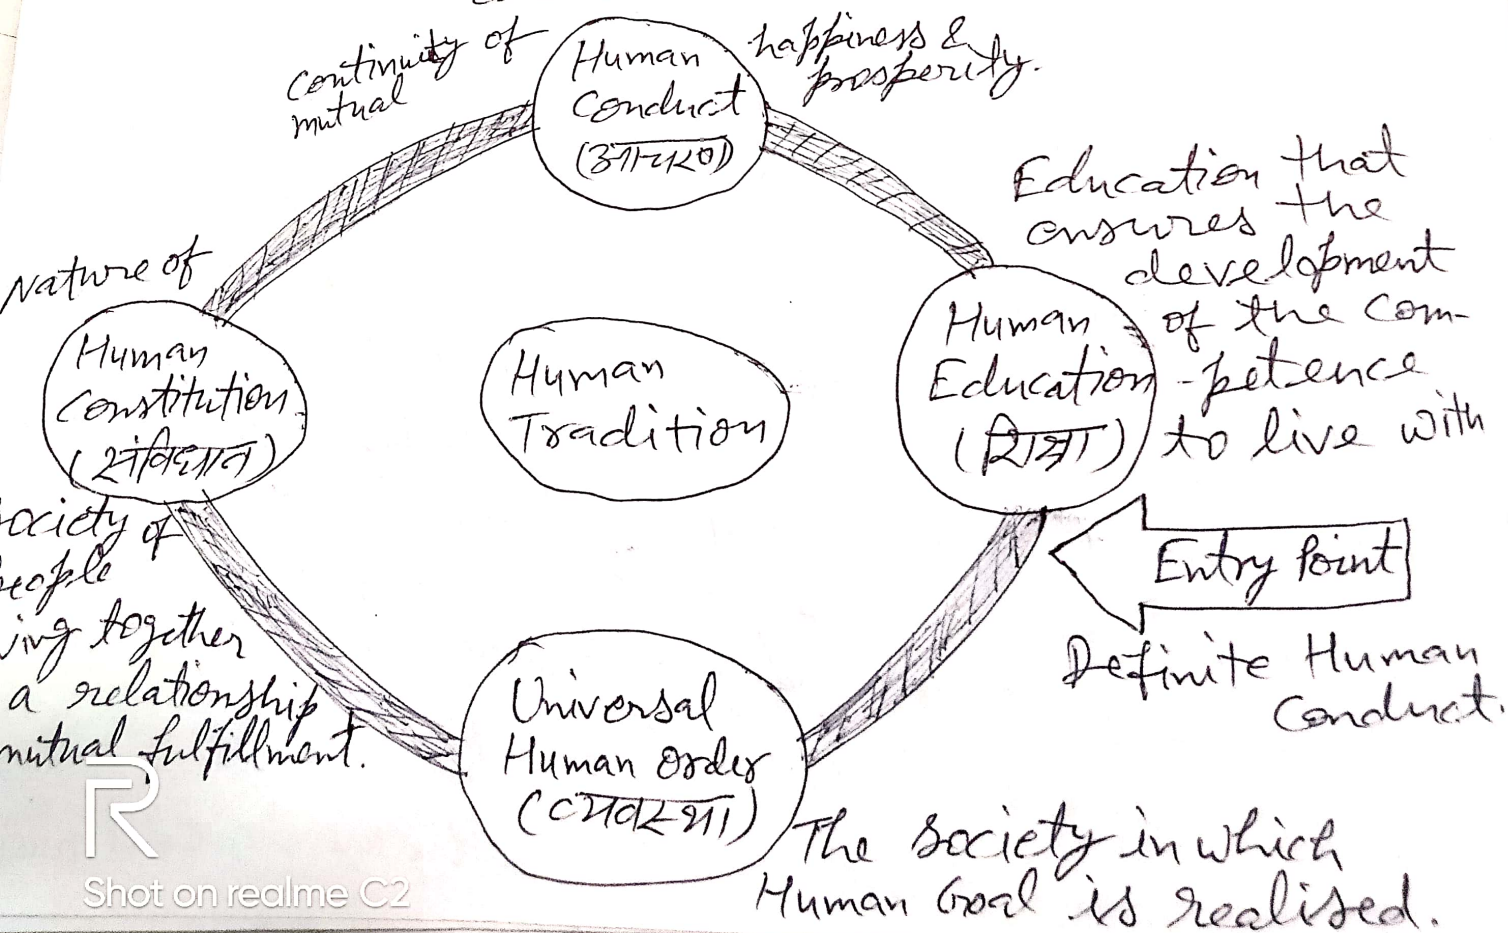 continuity of
mutual
Human
Conduct
(आचरण)
happiness &
prosperity.
Education that
ensures the
development
of the com-
-petence
to live with
Nature of
Human
Constitution
(संविधान)
Human
Tradition
Human
Education
(शिक्षा)
Entry Point
Definite Human
Conduct.
ociety of
eople
ving together
a relationship
mutual fulfillment.
Universal
Human Order
(व्यवस्था)
The society in which
Human Goal is realised.
R
Shot on realme C2